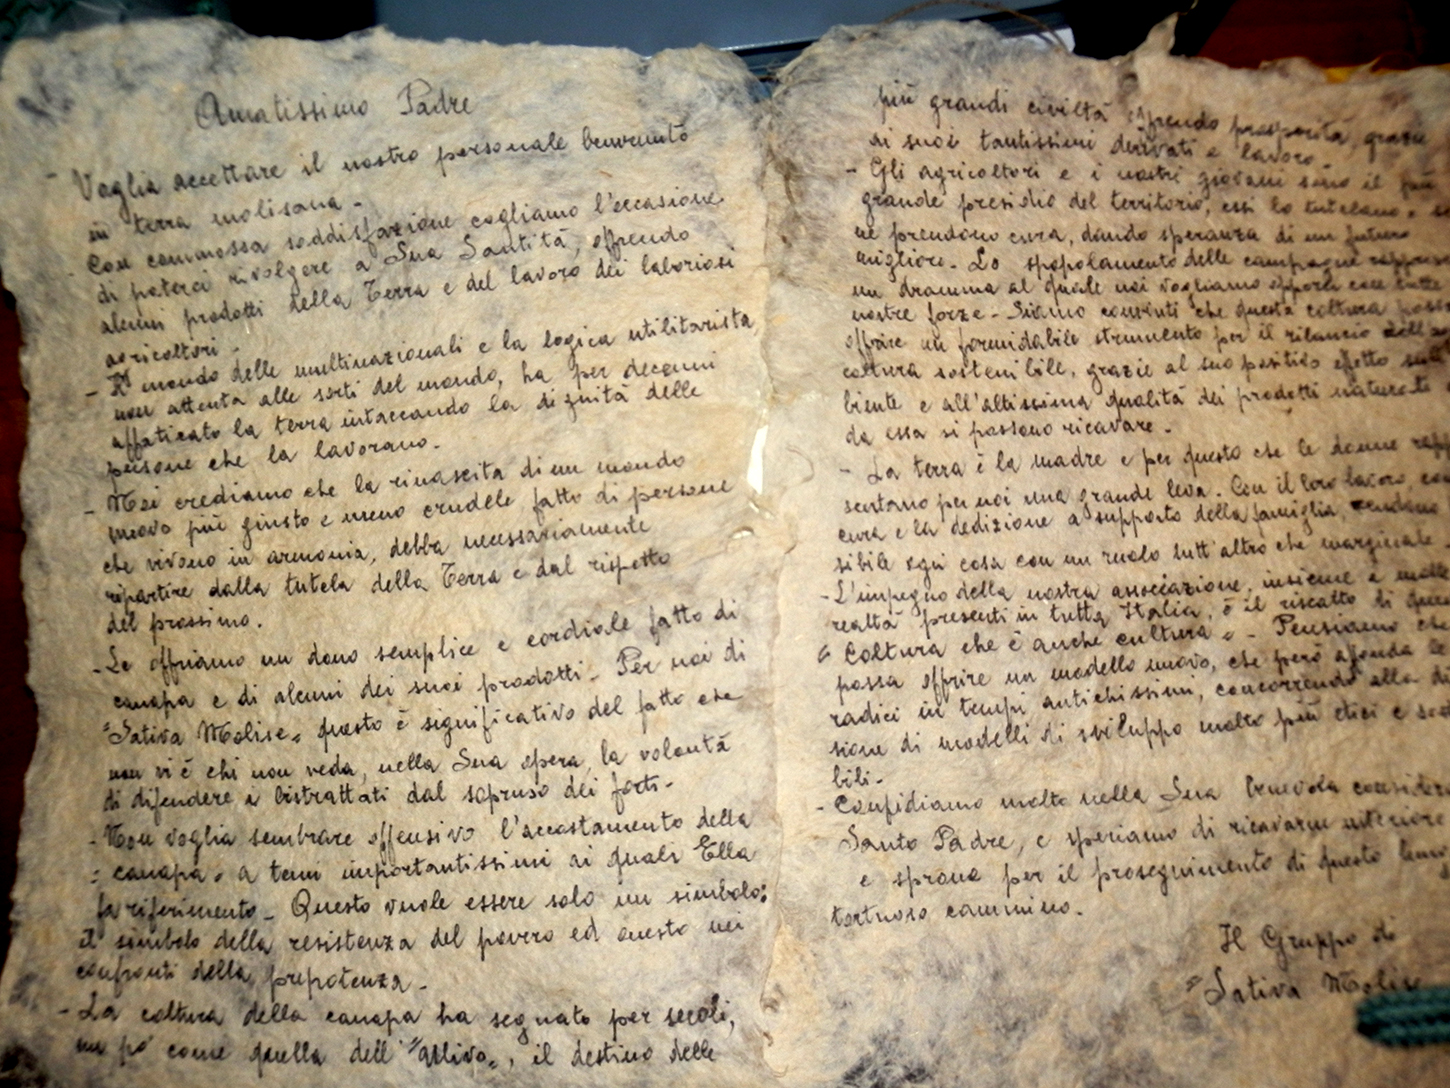 Amatissimo Padre
- Voglia accettare il nostro personale benvenuto
in terra molisana.
Con commossa soddisfazione cogliamo l'occasione
di poterci rivolgere a Sua Santità, offrendo
alcuni prodotti della Terra e del lavoro dei laboriosi
agricoltori.
- Il mondo delle multinazionali e la logica utilitarista
non attenta alle sorti del mondo, ha per decenni
affaticato la terra intaccando la dignità delle
persone che la lavorano.
- Noi crediamo che la rinascita di un mondo
nuovo più giusto e meno crudele fatto di persone
che vivono in armonia, debba necessariamente
ripartire dalla tutela della Terra e dal rispetto
del prossimo.
- Le offriamo un dono semplice e cordiale fatto di
canapa e di alcuni dei suoi prodotti. Per noi di
"Sativa Molise" questo è significativo del fatto che
non vi è chi non veda, nella Sua opera, la volontà
di difendere i bistrattati dal sopruso dei forti.
- Non voglia sembrare offensivo l'accostamento della
"canapa" a temi importantissimi ai quali Ella
fa riferimento. Questo vuole essere solo un simbolo:
il simbolo della resistenza del povero ed onesto nei
confronti della prepotenza.
- La coltura della canapa ha segnato per secoli,
un po' come quella dell'"Ulivo", il destino delle
più grandi civiltà offrendo prosperità, grazie
ai suoi tantissimi derivati e lavoro.
- Gli agricoltori e i nostri giovani sono il più
grande presidio del territorio, essi lo tutelano e se
ne prendono cura, dando speranza di un futuro
migliore. Lo spopolamento delle campagne
un dramma al quale noi vogliamo opporci con tutte
nostre forze. Siamo convinti che questa coltura
offrire un formidabile strumento per il rilancio
coltura sostenibile, grazie al suo positivo effetto
biente e all'altissima qualità dei prodotti
da essa si possono ricavare.
- La terra è la madre e per questo che le donne
sentano per noi una grande leva. Con il loro lavoro,
cura e la dedizione a supporto della famiglia, rendono
sibile ogni cosa con un ruolo tutt'altro che marginale.
- L'impegno della nostra associazione, insieme a molte
realtà presenti in tutta Italia, è il riscatto di
Coltura che è anche cultura". Pensiamo che
possa offrire un modello nuovo, che però affonda le
radici in tempi antichissimi, concorrendo alla
sione di modelli di sviluppo molto più etici e
bili.
- Confidiamo molto nella Sua benevola
Santo Padre, e speriamo di ricavarne ulteriore
e sprone per il proseguimento di questo lungo
tortuoso cammino.
Il Gruppo di
"Sativa Molise